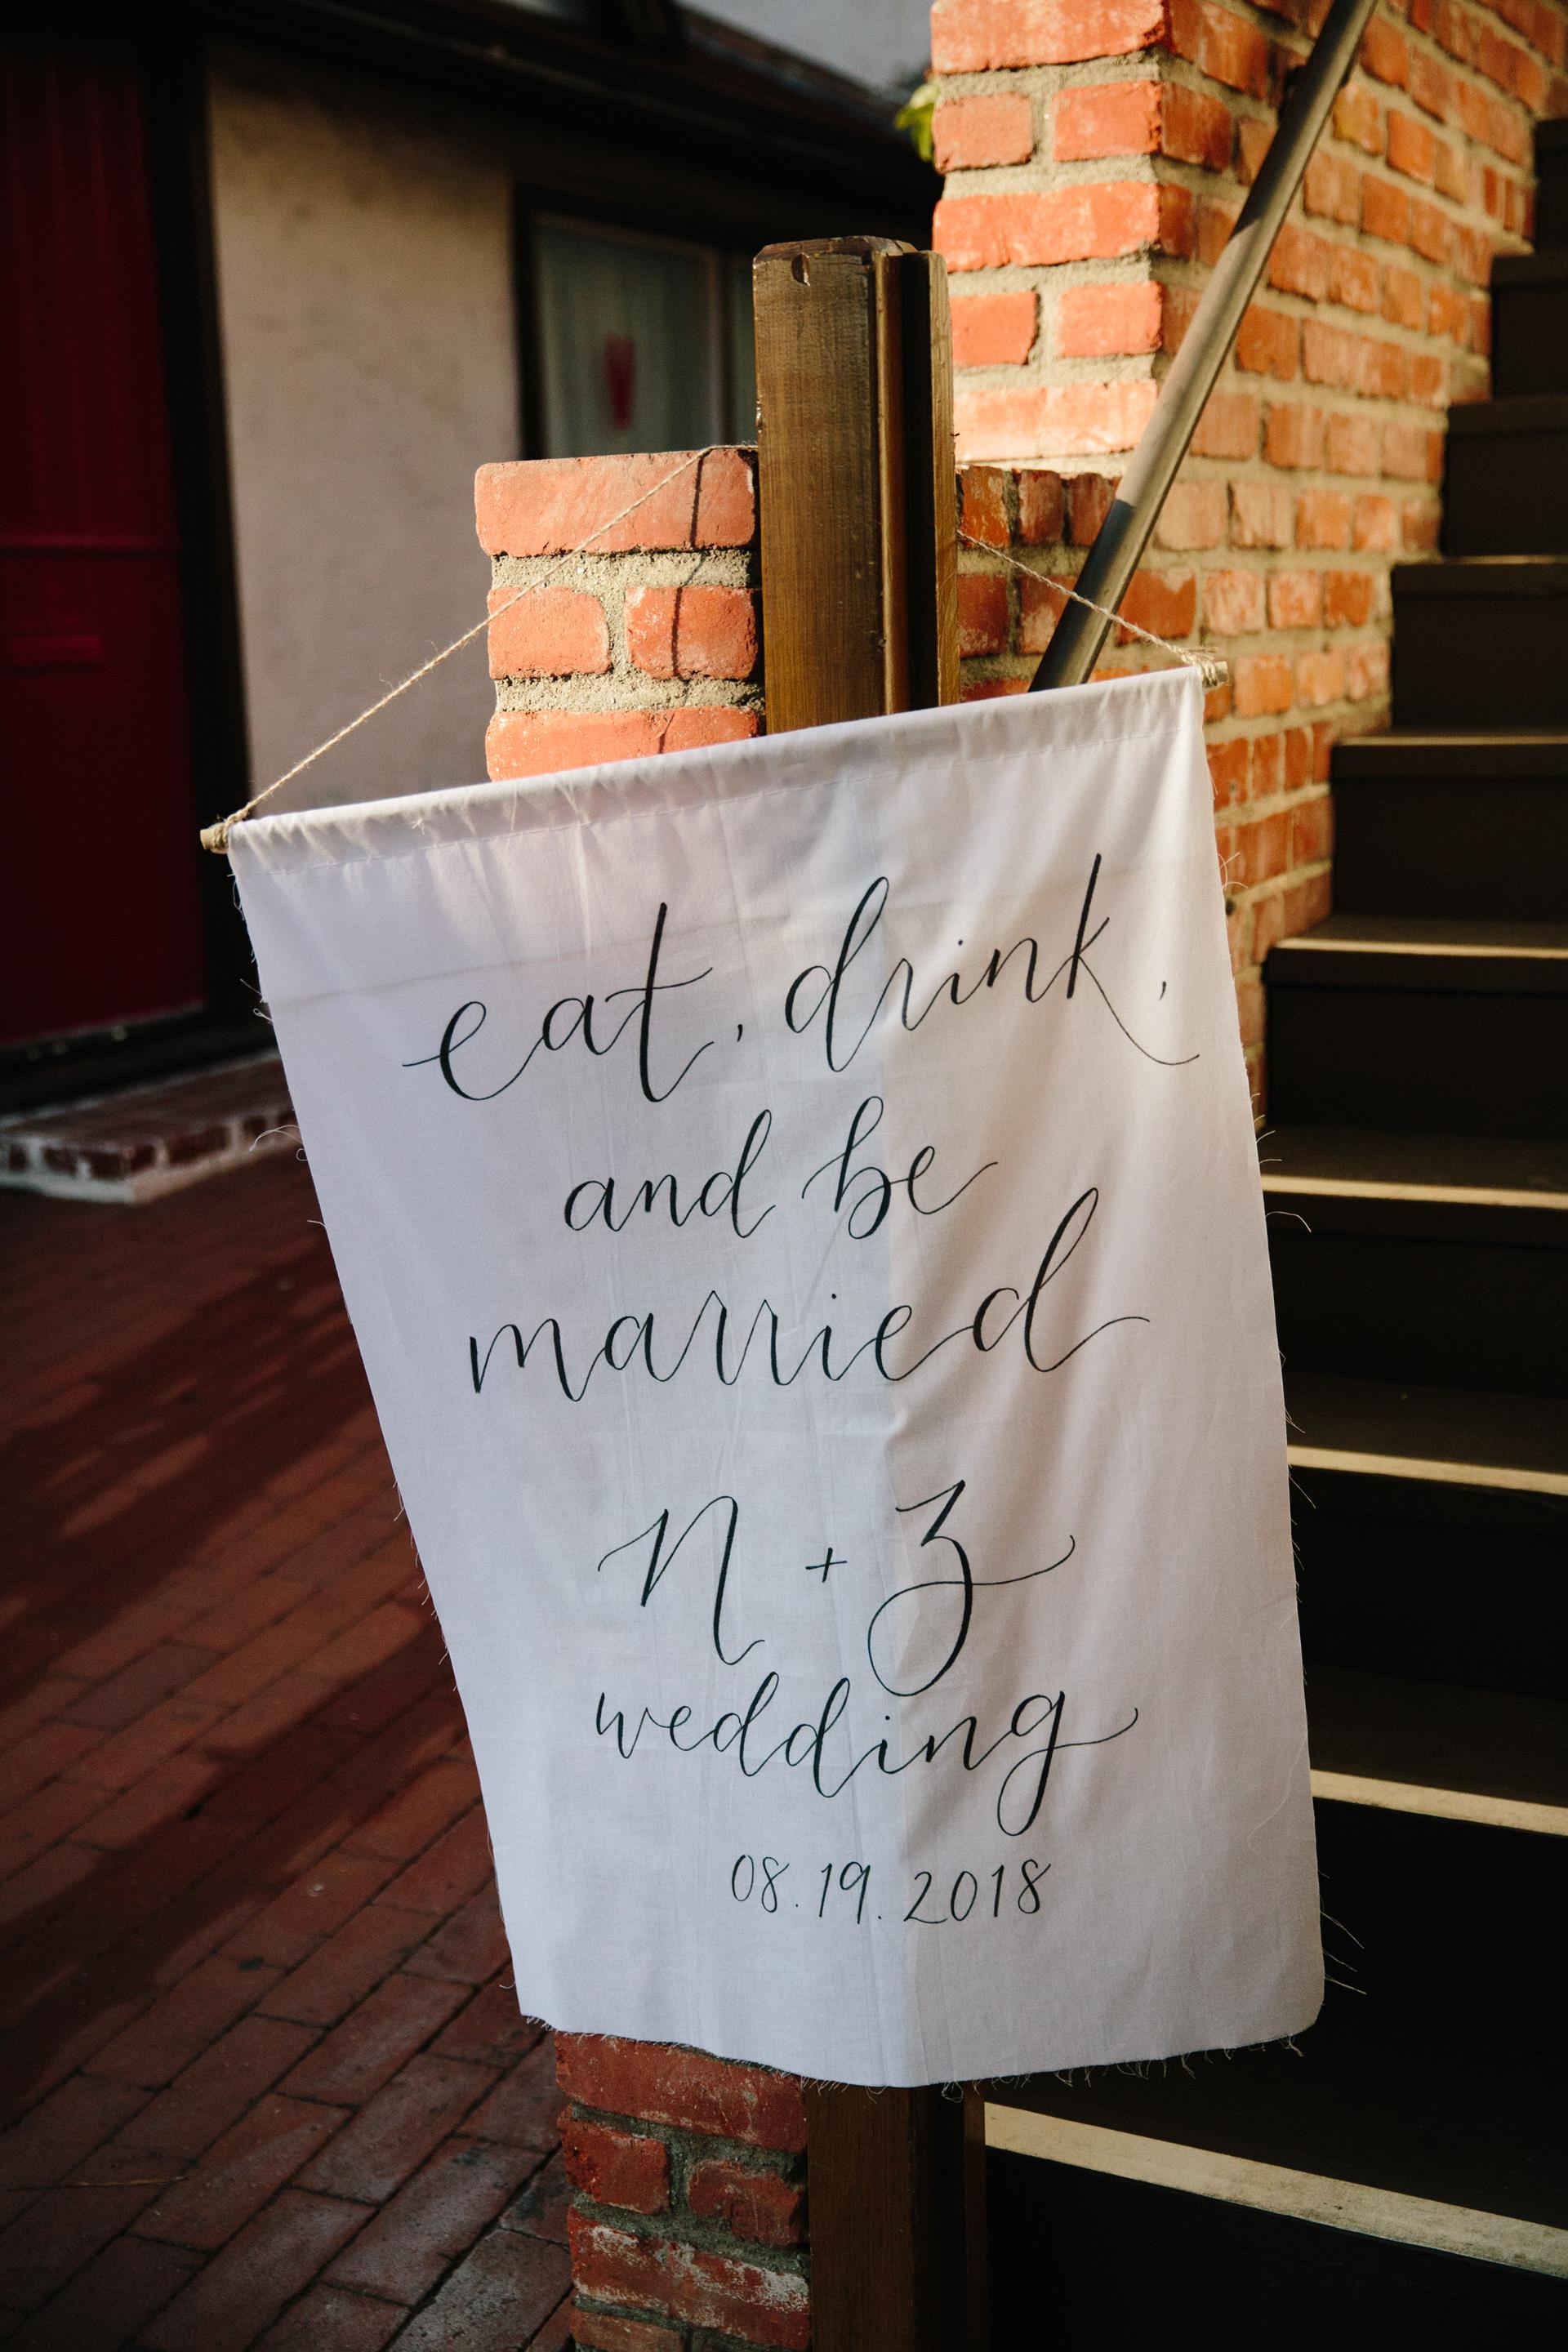 eat, drink,
and be
married
n + z
wedding
08.19.2018